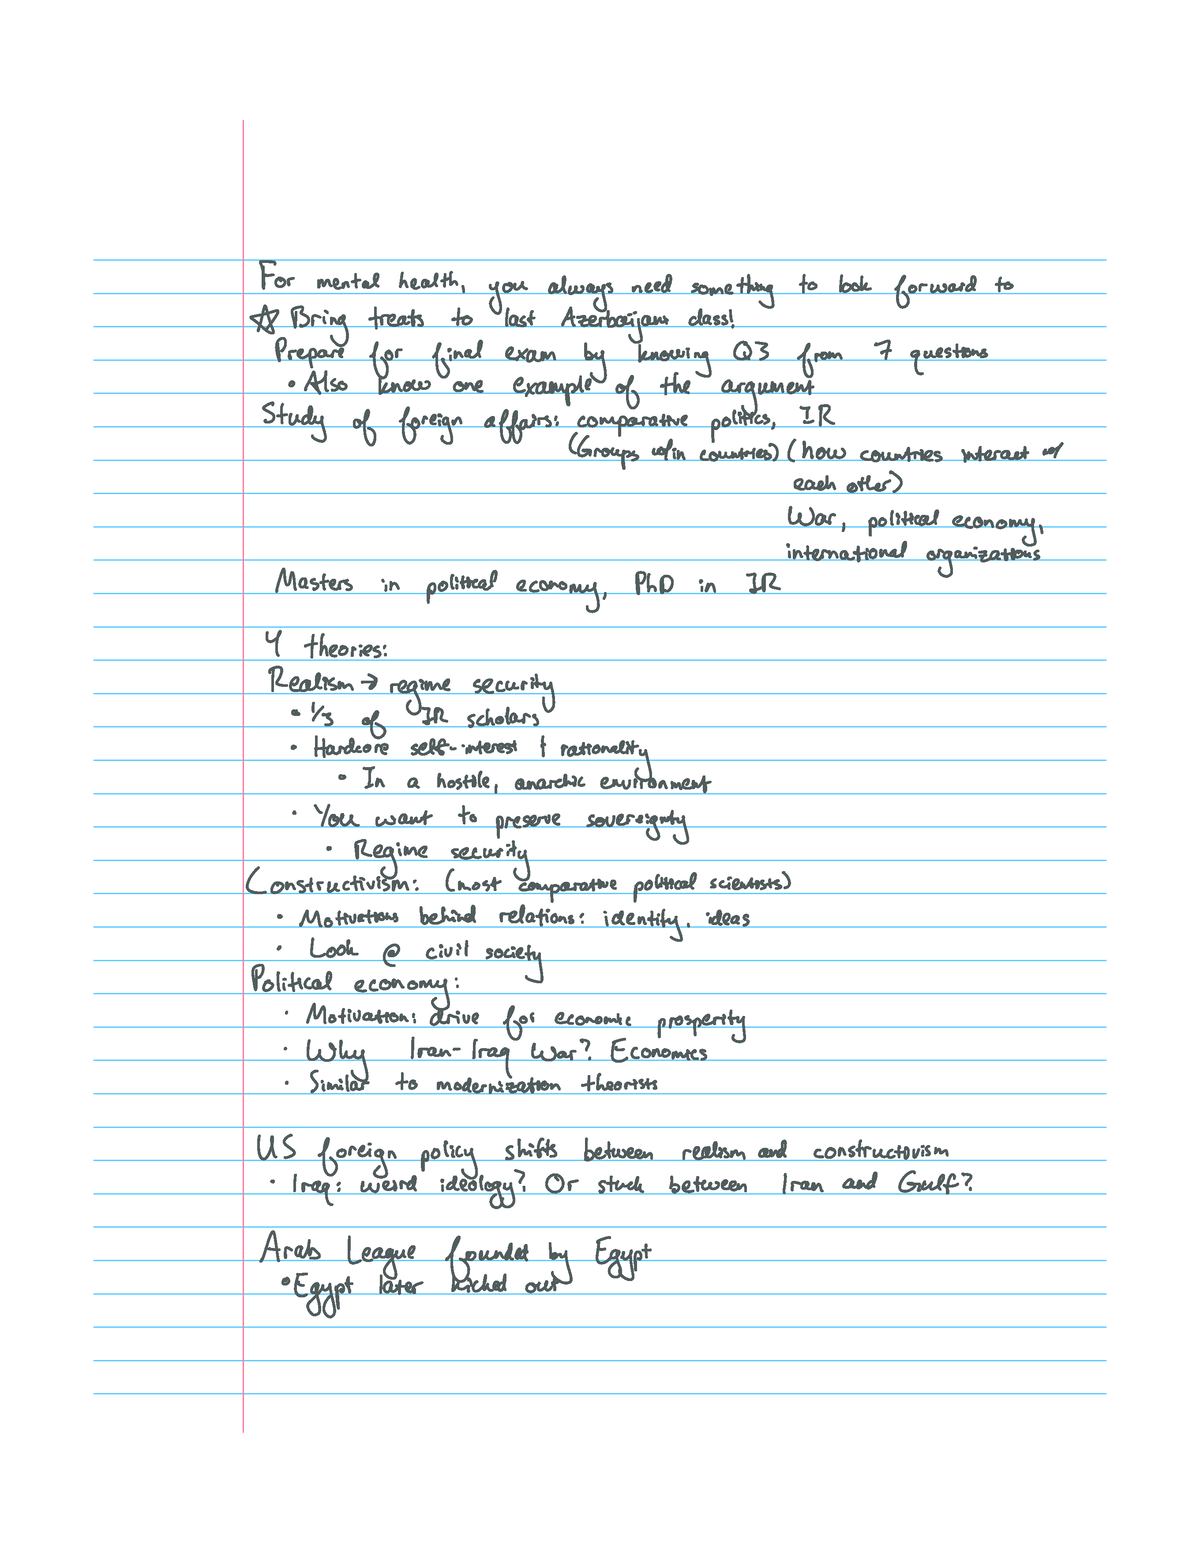 For mental health, you always need something to look forward to
☆ Bring treats to last Azerbaijani class!
Prepare for final exam by knowing Q3 from 7 questions
• Also know one example of the argument
Study of foreign affairs: comparative politics, IR
(Groups w/in countries) (how countries interact w/
each other)
War, political economy,
international organizations
Masters in political economy, PhD in IR
4 theories:
Realism → regime security
• 1/3 of IR scholars
• Hardcore self-interest + rationality
• In a hostile, anarchic environment
• You want to preserve sovereignty
• Regime security
Constructivism: (most comparative political scientists)
• Motivations behind relations: identity, ideas
• Look @ civil society
Political economy:
• Motivation: drive for economic prosperity
• Why Iran-Iraq War? Economics
• Similar to modernization theorists
US foreign policy shifts between realism and constructivism
• Iraq: weird ideology? Or stuck between Iran and Gulf?
Arab League founded by Egypt
• Egypt later kicked out